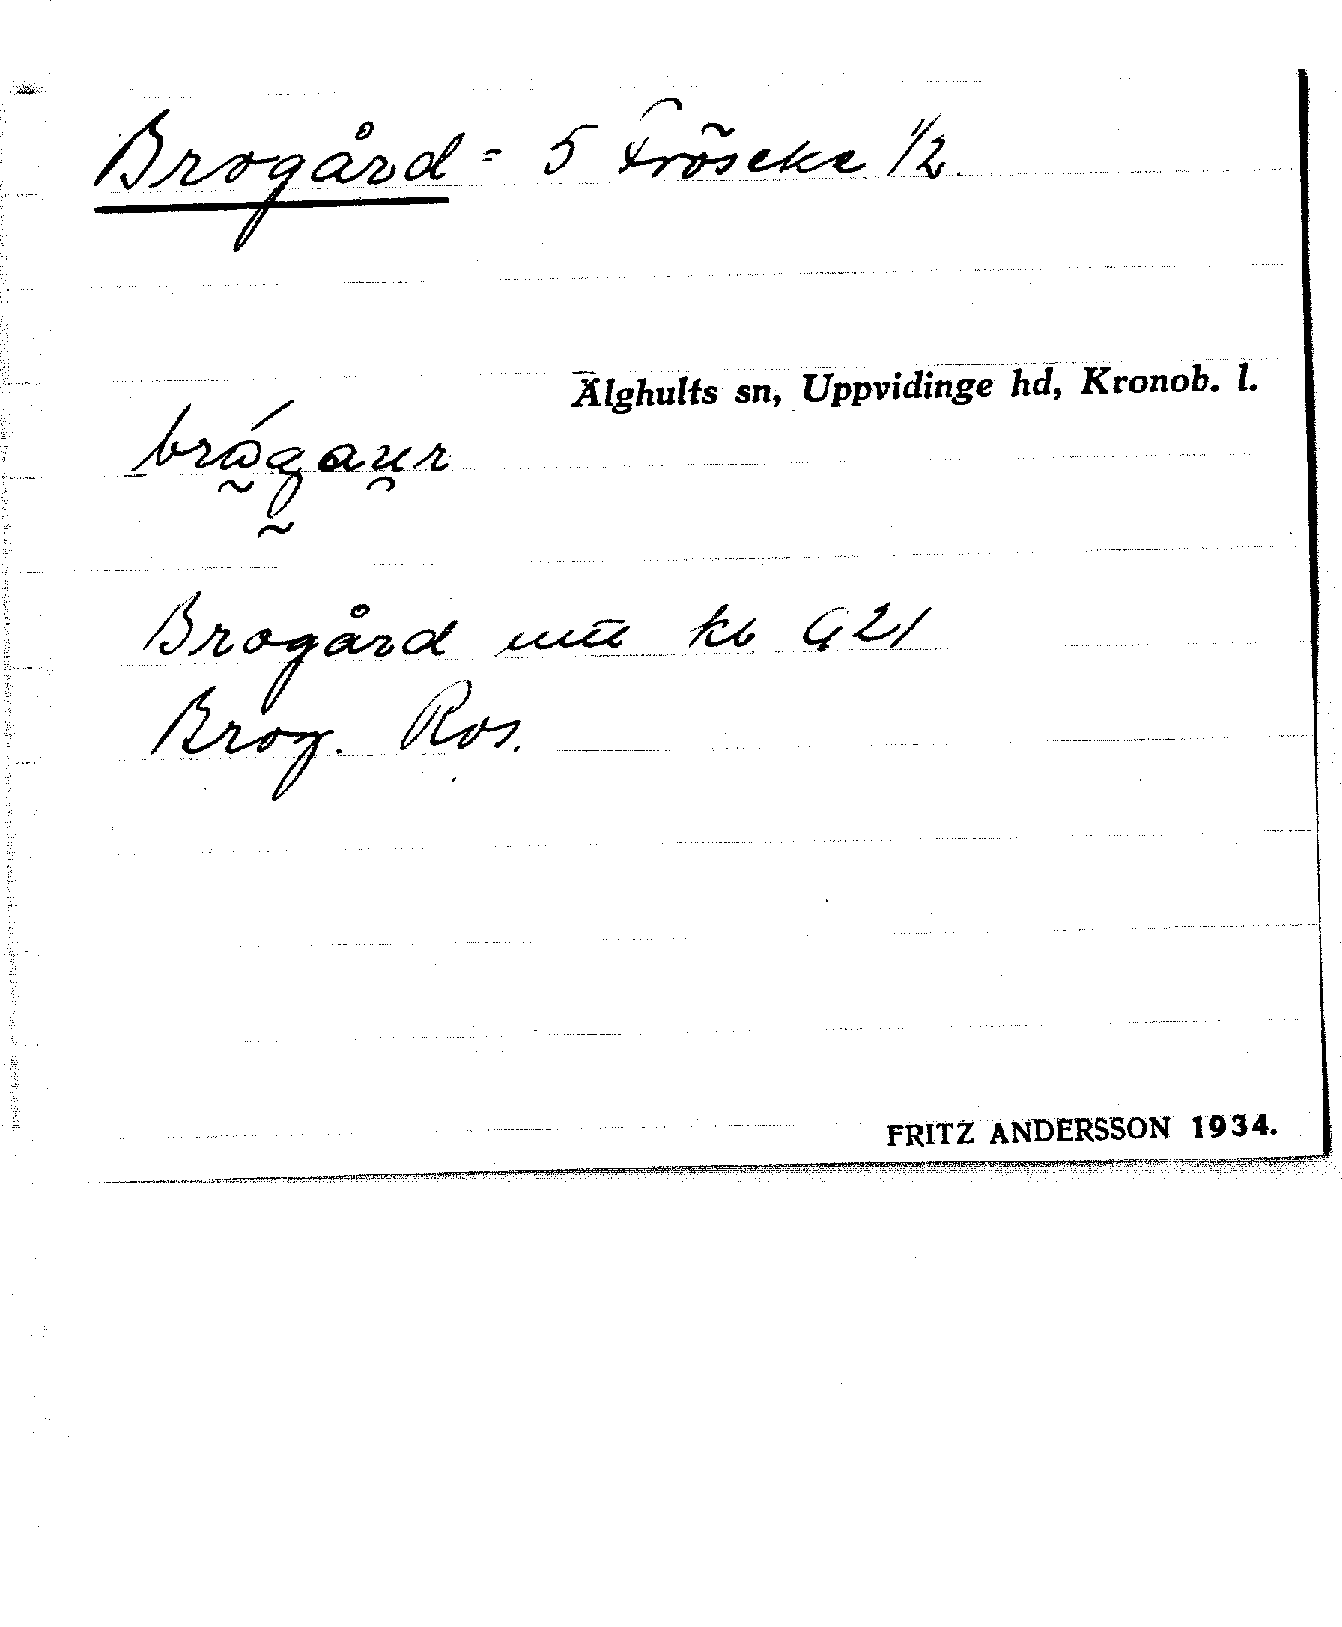 Brogård = 5 Fröseke 1/2
Älghults sn, Uppvidinge hd, Kronob. l.
Brogård kb G 21
Brog. Ros.
FRITZ ANDERSSON 1934.